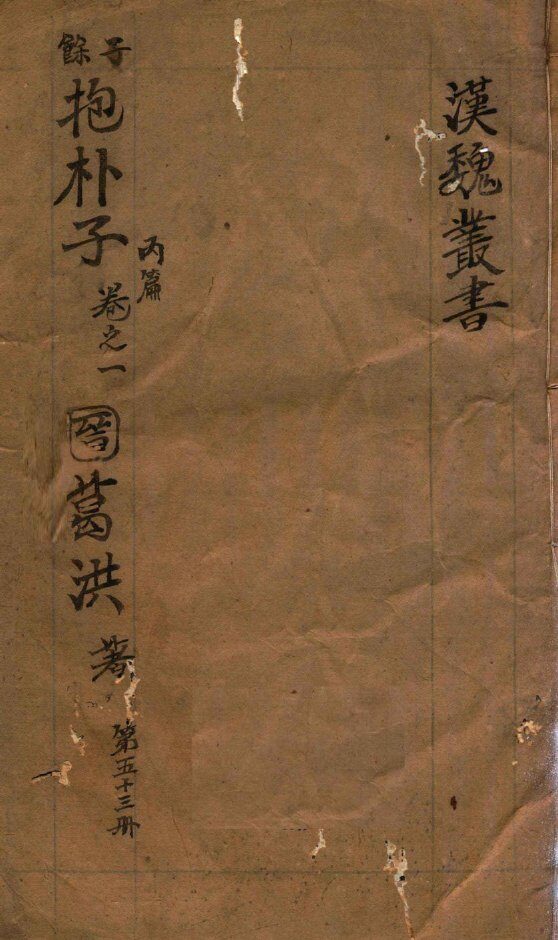 漢魏叢書
子餘
抱朴子 卷之一 晉 葛洪 著 第五十三册
丙篇